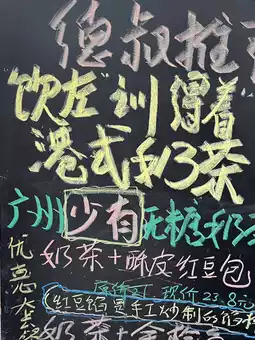 德叔推
"饮左"训得着
港式奶茶
广州少有无糖奶
奶茶+酥皮红豆包
优惠大
原价 现价23.8元
红豆馅是手工炒制的馅料
奶茶+